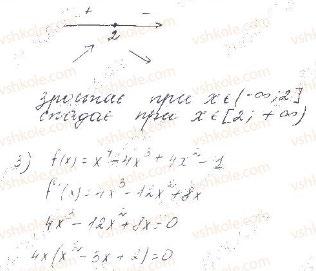 + -
2
зростає при x∈(-∞;2]
спадає при x∈[2;+∞)
3) f(x)=x⁴-4x³+4x²-1
f'(x)=4x³-12x²+8x
4x³-12x²+8x=0
4x(x²-3x+2)=0